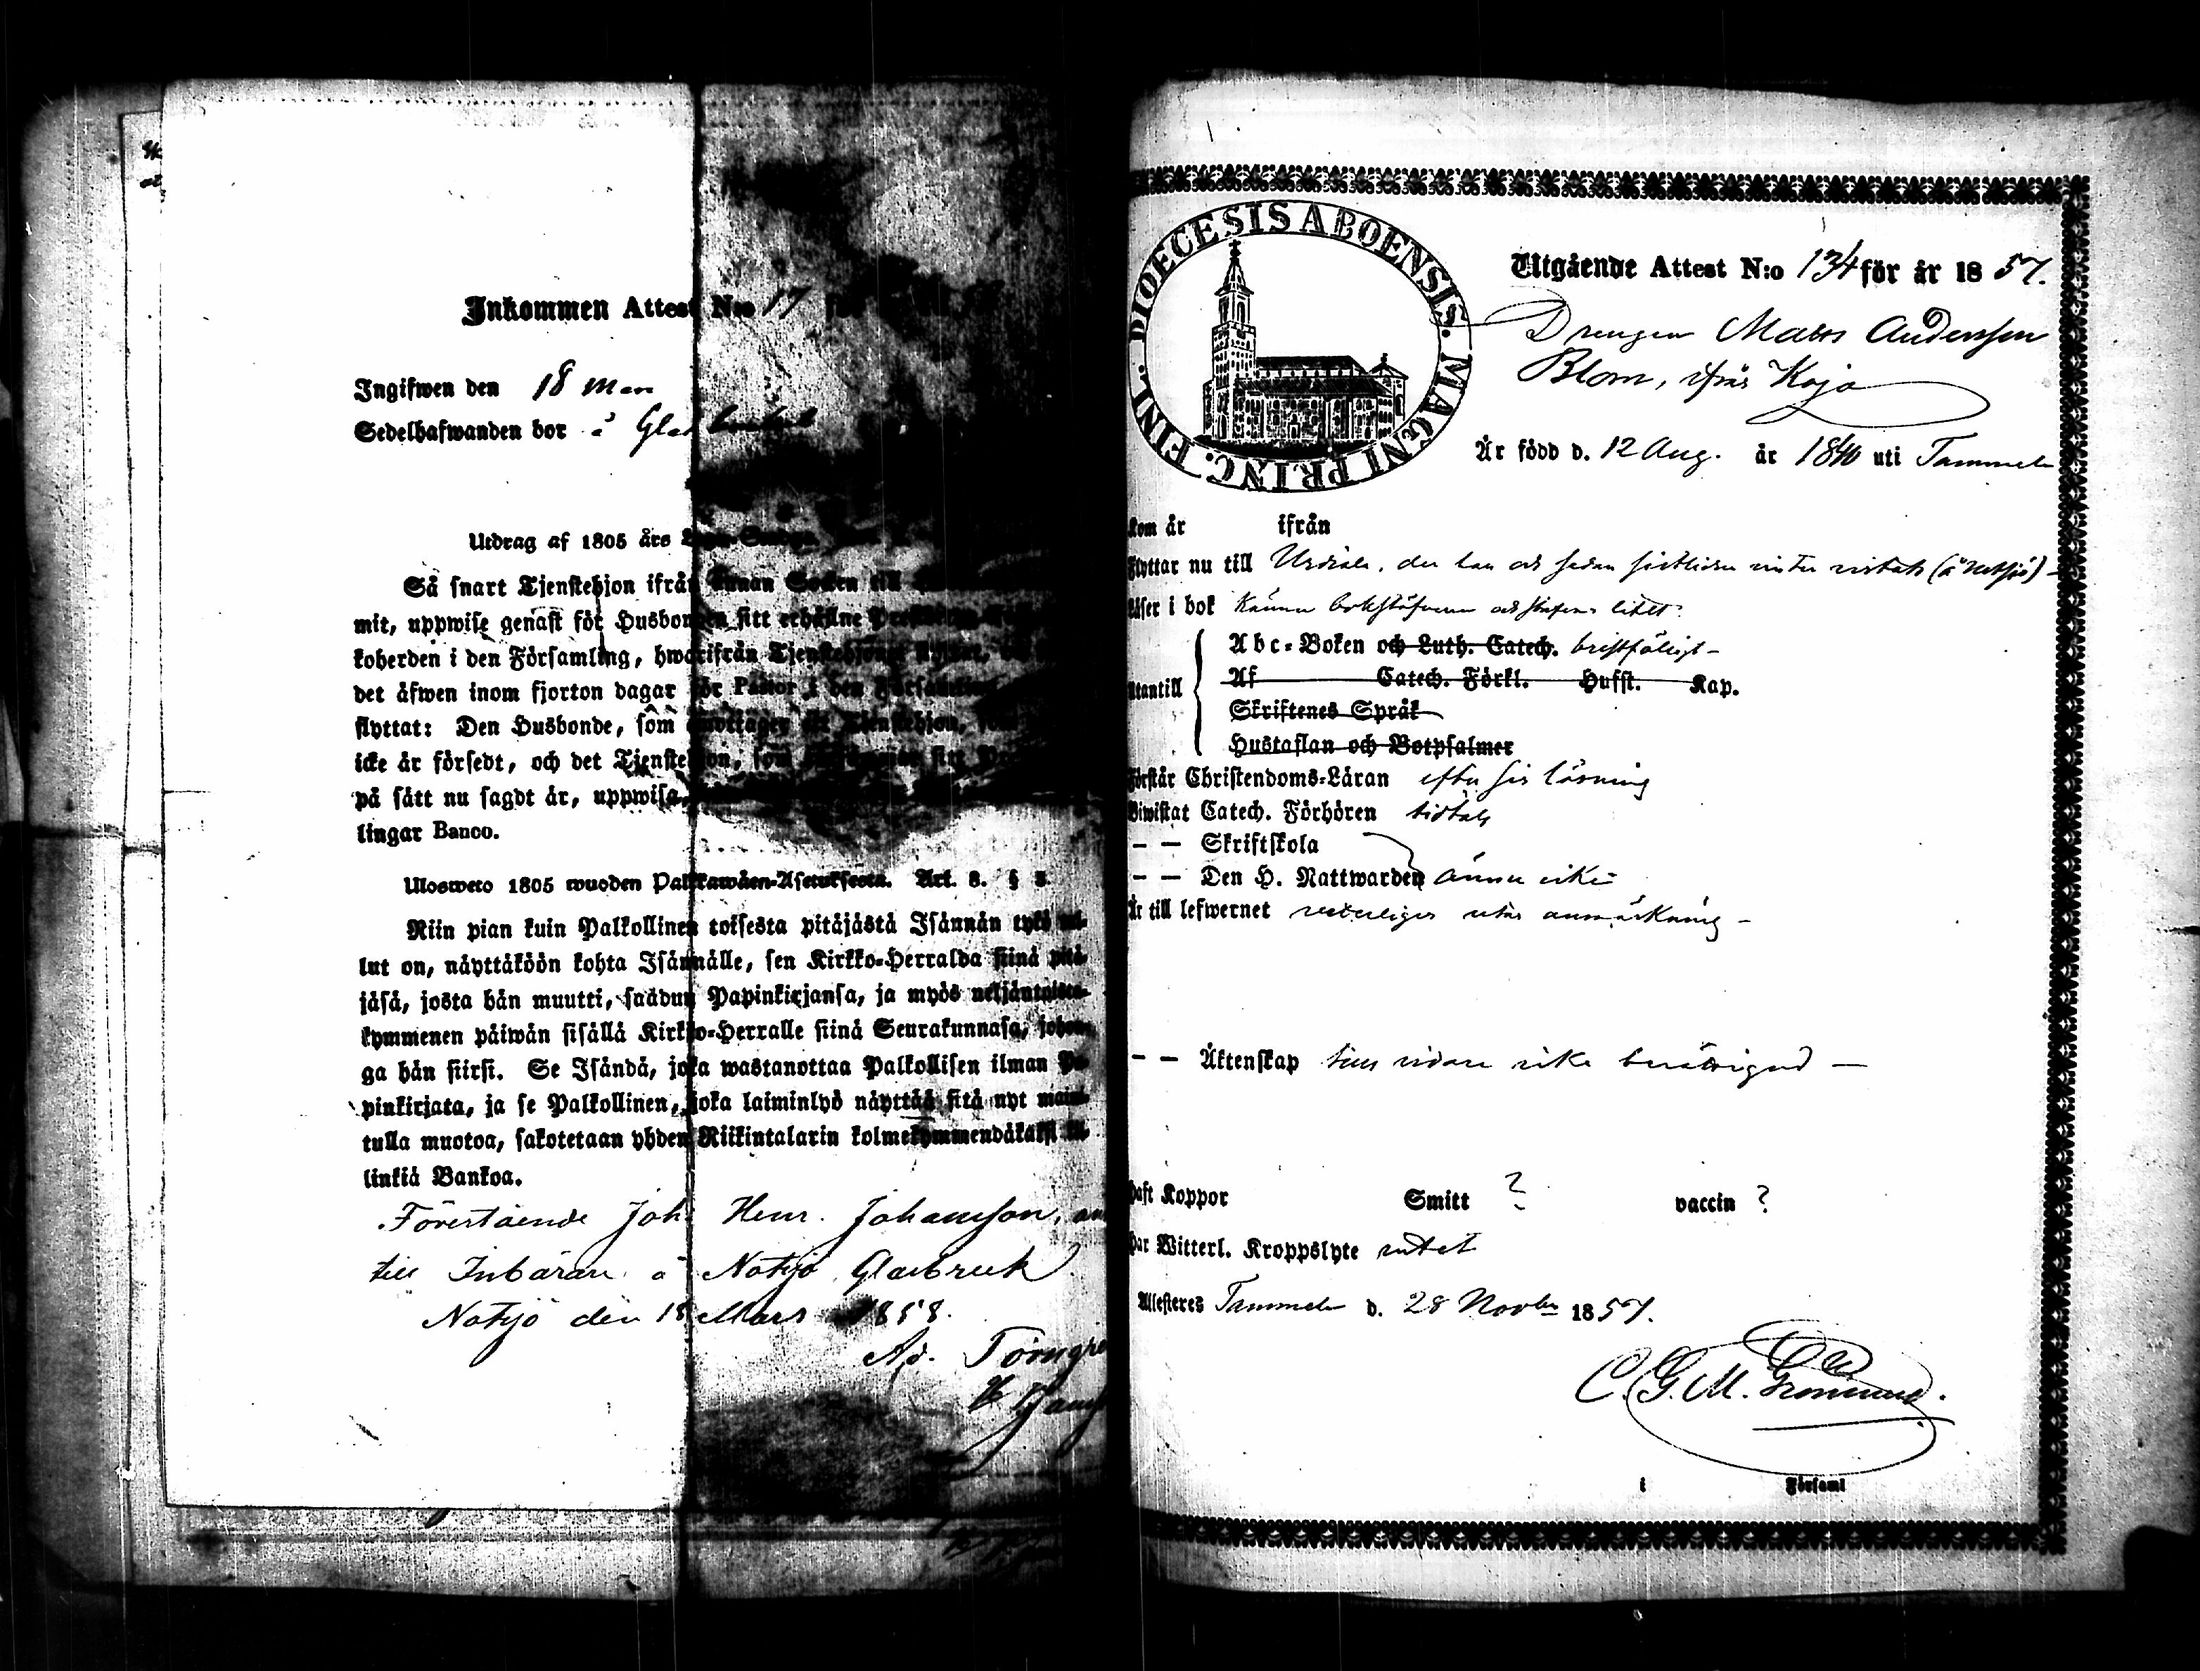 Inkommen Attest N:o 17
Ingifwen den 18 Mars
Sedelhafwanden bor å
Utdrag af 1805 års
Så snart Tjenstehjon ifrån annan Socken till
mit, uppwise genast för Husbonden sitt erhållne
koherden i den Församling, hwarifrån Tjenstehjonet
det äfwen inom fjorton dagar för Pastor i den Församling
flyttat: Den Husbonde, som emottager ett Tjenstehjon,
icke är försedt, och det Tjenstehjon, som
på sätt nu sagdt är, uppwisa,
lingar Banco.
Ulosweto 1805 wuoden Palkawäen-Asetuksesta. Art. 8. §
Niin pian kuin Palkollinen toisesta pitäjästä Isännän tykö tul-
lut on, näyttäköön kohta Isännälle, sen Kirkko-Herralda siinä pitä-
jäsä, josta hän muutti, saadun Papinkirjansa, ja myös neljäntoista-
kymmenen päiwän sisällä Kirkko-Herralle siinä Seurakunnasa, johon-
ga hän siirsi. Se Isändä, joka wastanottaa Palkollisen ilman Pa-
pinkirjata, ja se Palkollinen, joka laiminlyö näyttää sitä nyt maini-
tulla muotoa, sakotetaan yhden Riikintalarin kolmekymmendäkaksi kil-
linkiä Bankoa.
Förestående Joh. Henr. Johansson,
till Inbärare å Notsjö Glasbruk
Notsjö den 18 Mars 1858.
Ad. Törngren
DIOECESIS ABOENSIS. MAGNI PRINC. FINL.
Utgående Attest N:o 134 för år 1857.
Drengen Mats Andersson
Blom, ifrån Kojo
Är född d. 12 Aug. år 1840 uti Tammela
Kom år ifrån
Flyttar nu till Urdiala, der han ock sedan sistliden vinter vistats (å Notsjö)
Läser i bok Känner bokstäfverna och litet.
Utantill
Abc-Boken och Luth. Catech. bristfälligt
Af Catech. Förkl. Hufst. Kap.
Skriftenes Språk
Hustaflan och Botpsalmer
Förstår Christendoms-Läran efter sin läsning
Biwistat Catech. Förhören tidtals
— — Skriftskola
— — Den H. Nattwarden ännu icke
Är till lefwernet veterligen utan anmärkning
— — Äktenskap tills vidare icke berättigad
Haft Koppor Smitt ? vaccin ?
Har Witterl. Kroppslyte intet
Attesteres Tammela d. 28 Novber 1857.
C. G. M.
i Församl